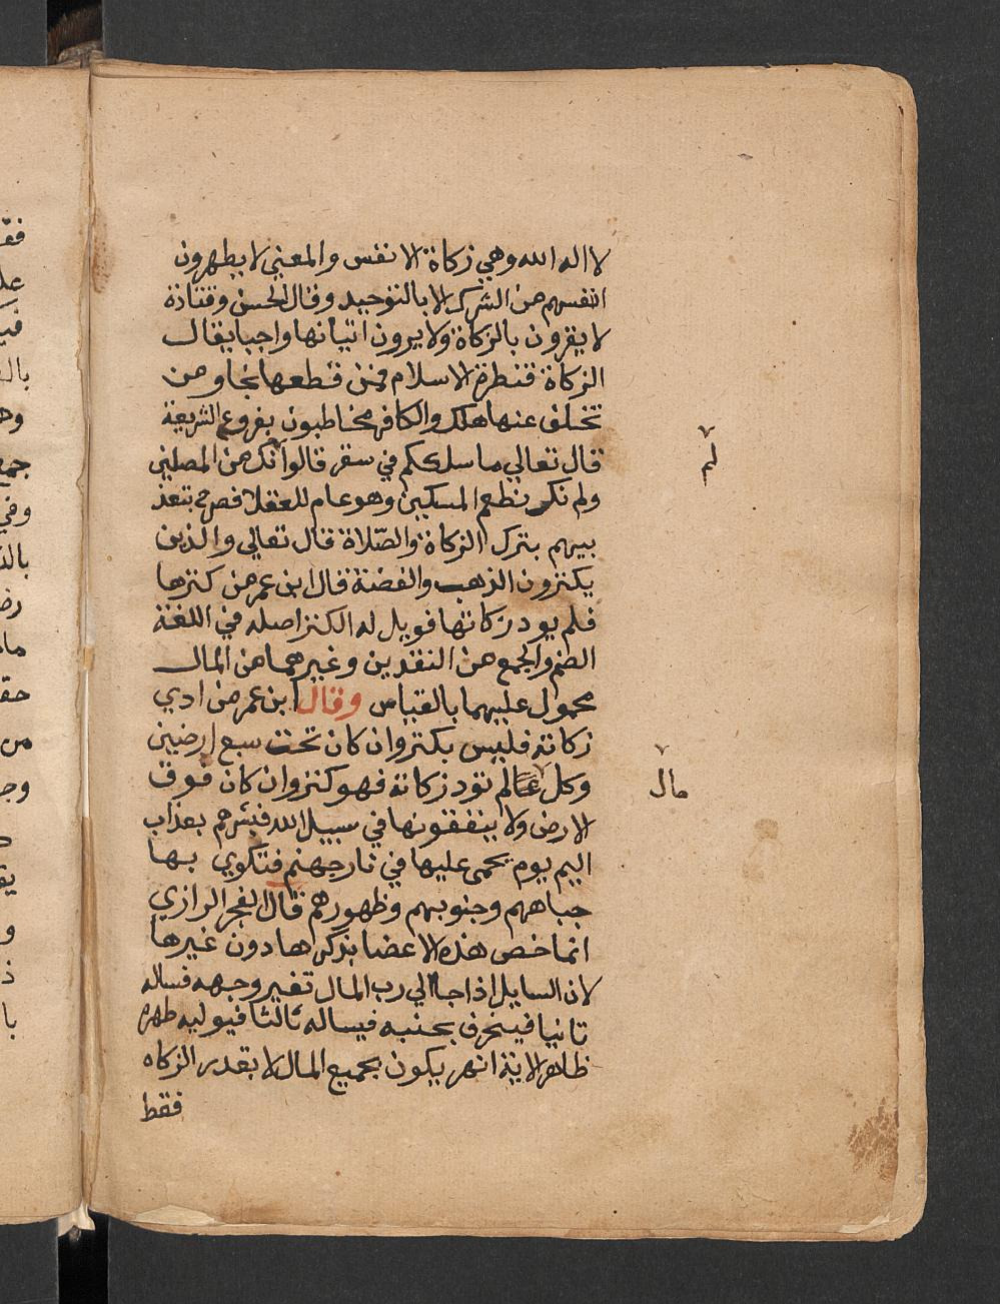 لا اله الا الله وهي زكاة الانفس والمعني لا يطهرون
انفسهم من الشرك الا بالتوحيد وقال الحسن وقتادة
لا يقرون بالزكاة ولا يرون اتيانها واجبا يقال
الزكاة قنطرة الاسلام فمن قطعها نجا ومن
تخلف عنها هلك والكافر مخاطبون بفروع الشريعة
قال تعالي ما سلككم في سقر قالوا نك من المصلين
لم
ولم نك نطعم المسكين وهو عام للعقلا فصرح بتعذ
يبهم بترك الزكاة والصلاة قال تعالي والذين
يكنزون الذهب والفضة قال ابن عمر من كنزها
فلم يود زكاتها فويل له الكنز اصله في اللغة
الضم والجمع من النقدين وغيرهما من المال
محمول عليهما بالقياس وقال ابن عمر من ادي
زكاته فليس بكنز وان كان تحت سبع ارضين
وكل لم تود زكاته فهو كنز وان كان فوق
مال
الارض ولا ينفقونها في سبيل الله فبشرهم بعذاب
اليم يوم يحمى عليها في نار جهنم فتكوي بها
جباههم وجنوبهم وظهورهم قال الفخر الرازي
انما خص هذه الاعضا بذكرها دون غيرها
لان السايل اذا جا الي رب المال تغير وجهه فساله
ثانيا فينحرف بجنبه فيساله ثالثا فيوليه ظهره
ظاهر الاية انه يكون بجميع المال لا بقدر الزكاه
فقط